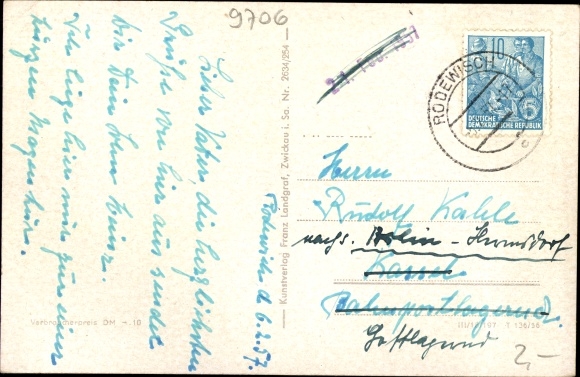 9706
Lieber Vater, die herzlichsten
Grüße von hier aus sendet
Dir Dein Sohn
Ich liege hier mit
Magen
Rodewisch d. 6.2.57.
Kunstverlag Franz Landgraf, Zwickau i. Sa. Nr. 2634/254
Verbraucherpreis DM -.18
10
5
DEUTSCHE
DEMOKRATISCHE REPUBLIK
RODEWISCH
Herrn
Rudolf Kahle
nachs. Berlin - Hermsdorf
Kassel
Bahnpostlagernd.
III/17/197 T 136/56
2,-